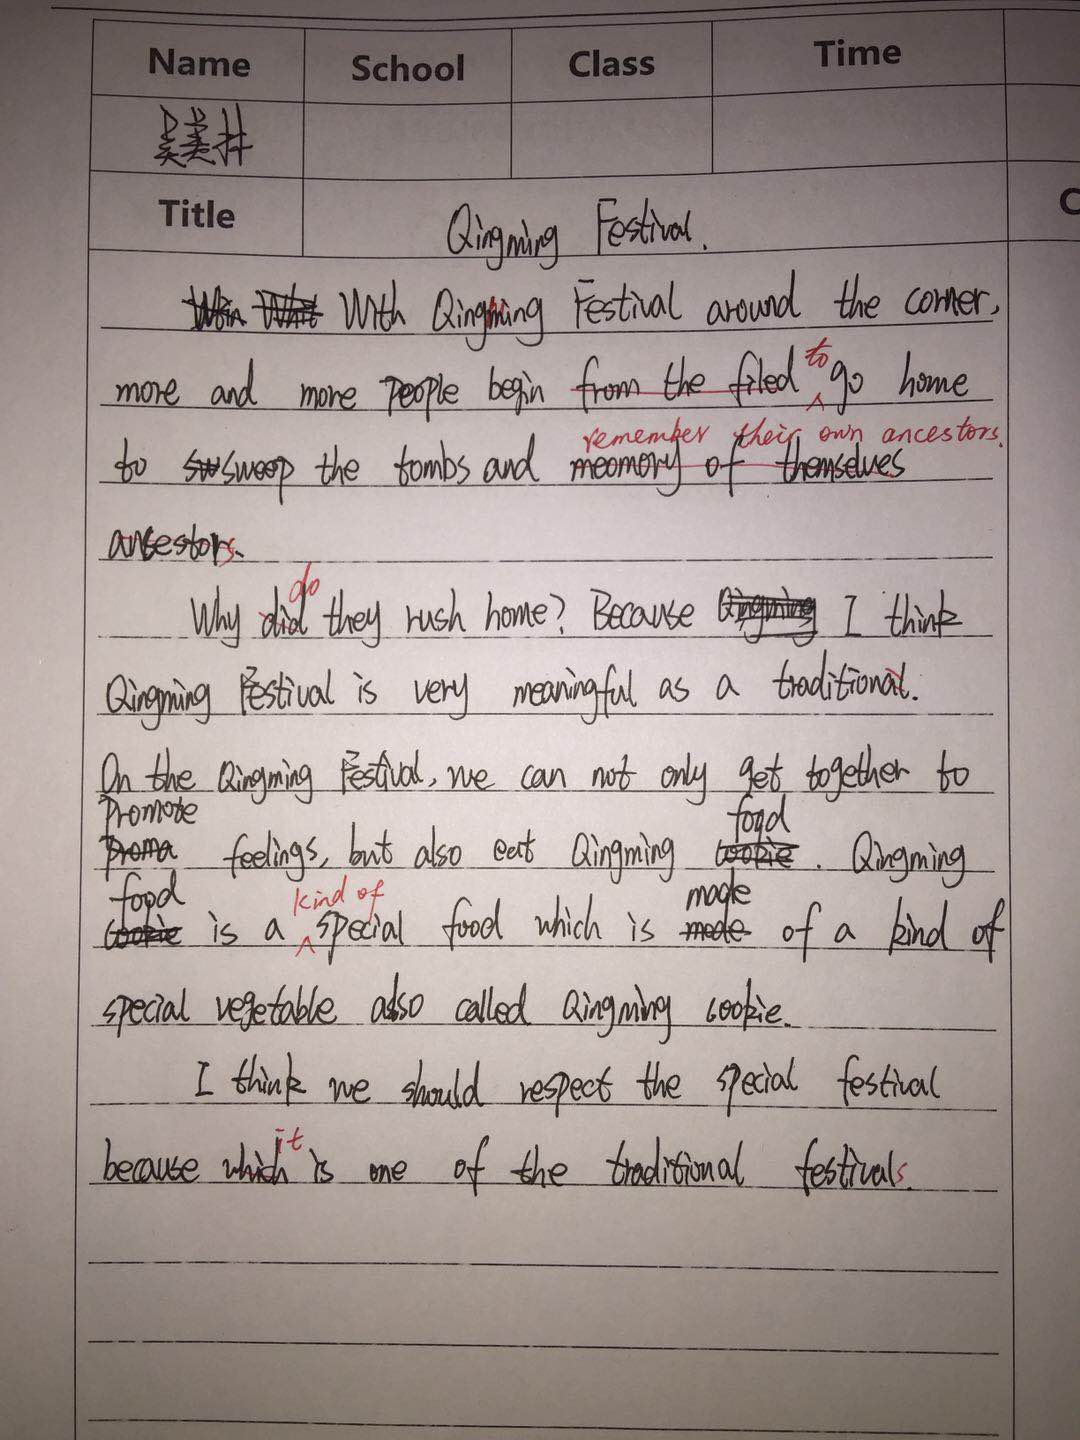 Name School Class Time
Title Qingming Festival.
With Qingming Festival around the corner,
to
more and more people begin from the filed go home
remember their own ancestors.
to sweep the tombs and meomory of themselves
ancestors.
do
Why did they rush home? Because I think
Qingming Festival is very meaningful as a traditional.
On the Qingming Festival, we can not only get together to
promote food
feelings, but also eat Qingming cookie. Qingming
food kind of made
cookie is a special food which is made of a kind of
special vegetable also called Qingming cookie.
I think we should respect the special festival
it
because which is one of the traditional festivals.